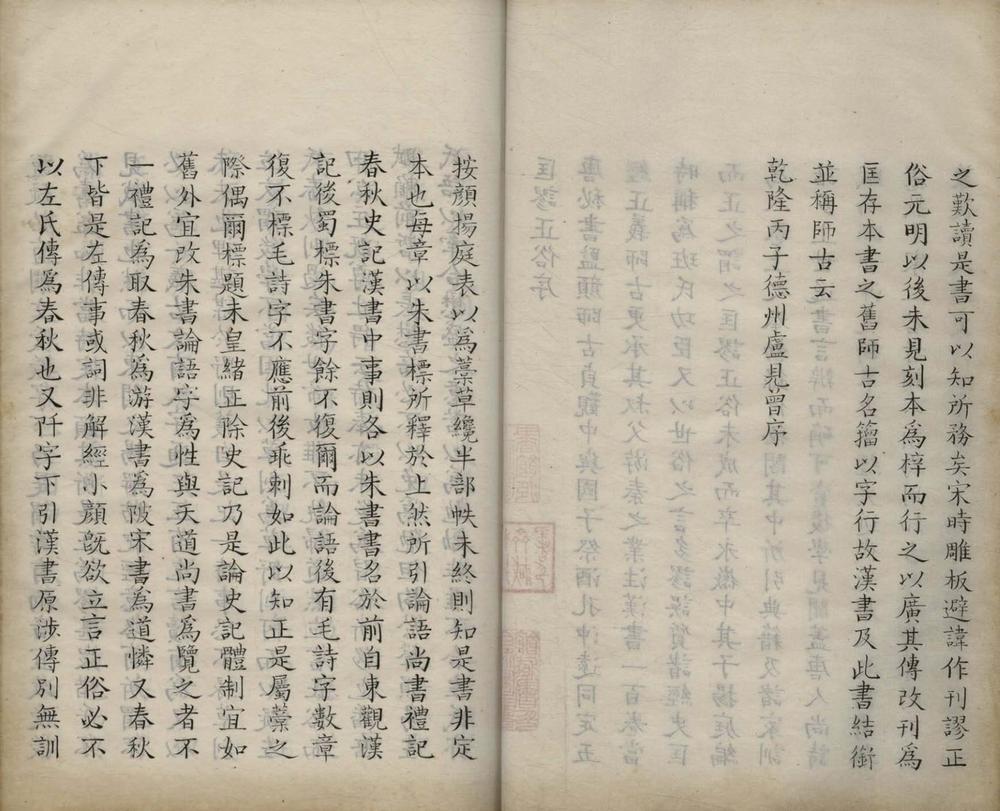 之歎讀是書可以知所務矣宋時雕板避諱作刊謬正
俗元明以後未見刻本爲梓而行之以廣其傳改刊爲
匡存本書之舊師古名籀以字行故漢書及此書結銜
並稱師古云
乾隆丙子德州盧見曾序
按顔揚庭表以爲藁草纔半部帙未終則知是書非定
本也每章以朱書標所釋於上然所引論語尚書禮記
春秋史記漢書中事則各以朱書書名於前自東觀漢
記後蜀標朱書字餘不復爾而論語後有毛詩字數章
復不標毛詩字不應前後乖剌如此以知正是屬藁之
際偶爾標題未皇緒正除史記乃是論史記體制宜如
舊外宜改朱書論語字爲性與天道尚書爲覽之者不
一禮記爲取春秋爲游漢書爲陂宋書爲道憐又春秋
下皆是左傳事或詞非解經小顔旣欲立言正俗必不
以左氏傳爲春秋也又阡字下引漢書原涉傳別無訓